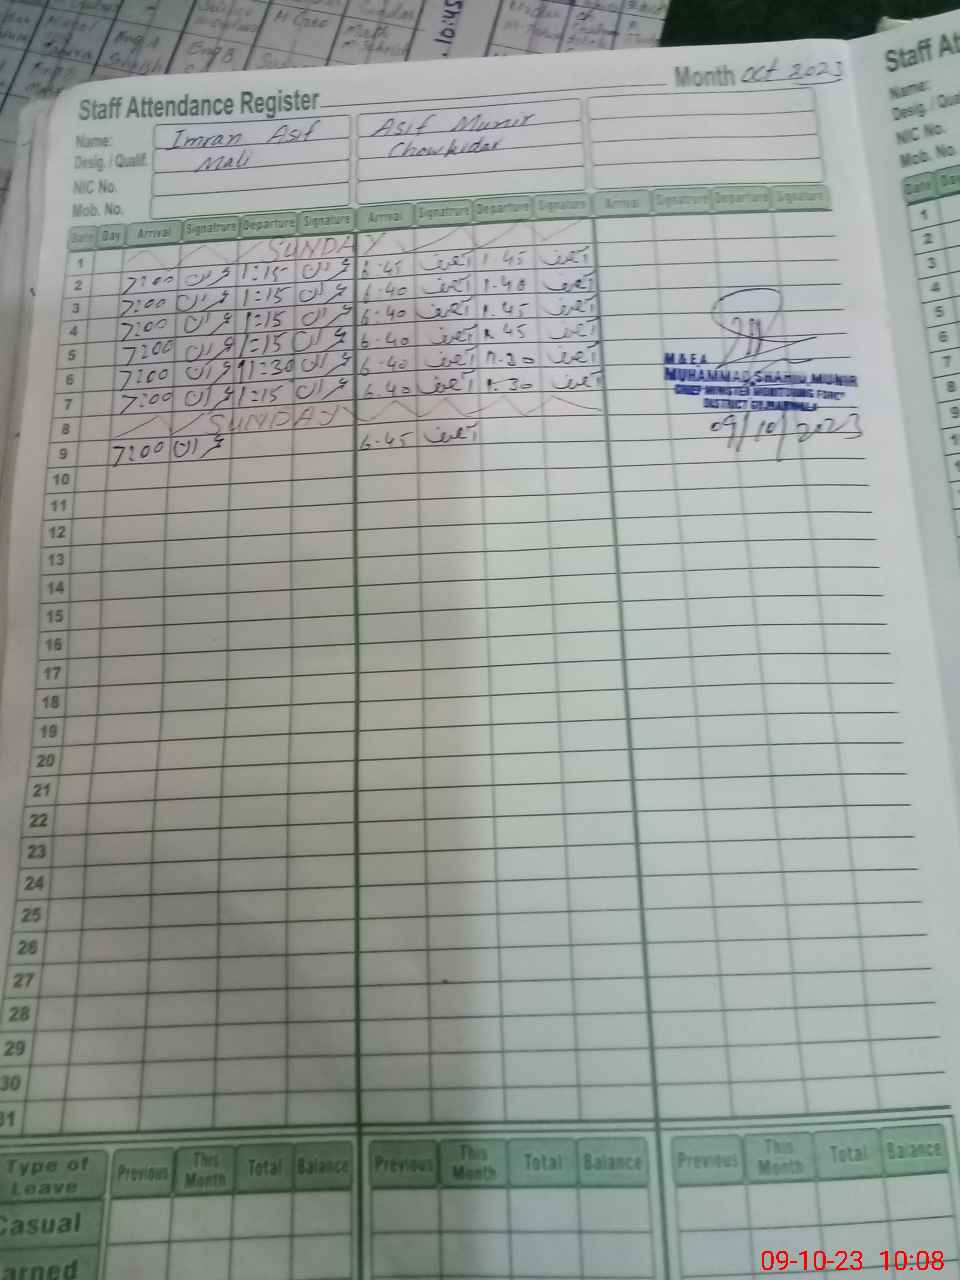 10:45
Staff Attendance Register Month Oct 2023
Staff At
Name: Imran Asif Asif Munir
Name:
Desig. / Qualif. Mali Chowkidar
Desig. / Qua
NIC No.
NIC No.
Mob. No.
Mob. No.
Date Day Arrival Signatrure Departure Signature Arrival Signatrure Departure Signature Arrival Signatrure Departure Signature
Date Da
1 SUNDAY
2 7:00 عمران 1:15 عمران 6.45 آصف 1.45 آصف
3 7:00 عمران 1:15 عمران 6.40 آصف 1.40 آصف
4 7:00 عمران 1:15 عمران 6.40 آصف 1.45 آصف
5 7:00 عمران 1:15 عمران 6.40 آصف 1.45 آصف
6 7:00 عمران 11:30 عمران 6.40 آصف آصف
7 7:00 عمران 1:15 عمران 6.40 آصف 1.30 آصف
8 SUNDAY
9 7:00 عمران 6.45 آصف
M & E A
MUHAMMAD SHAHID MUNIR
CHIEF MINISTER MONITORING FORCE
DISTRICT
09/10/2023
10
11
12
13
14
15
16
17
18
19
20
21
22
23
24
25
26
27
28
29
30
31
1
2
3
4
5
6
7
8
9
Type of Leave Previous This Month Total Balance Previous This Month Total Balance Previous This Month Total Balance
Casual
arned
09-10-23 10:08